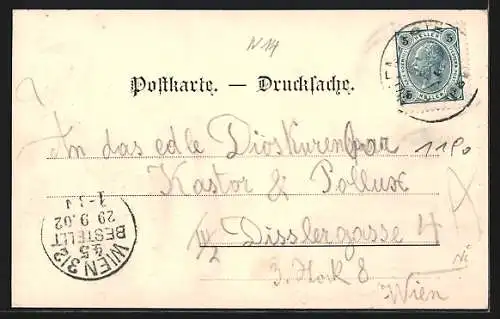 N 14
Postkarte. — Drucksache.
An das edle Dioskurenpaar
1190
Kastor & Pollux
Disslergasse 4
3. Stock 8
Ni
Wien
WIEN 3/2
45
BESTELLT
29 9.02
5
5
HELLER